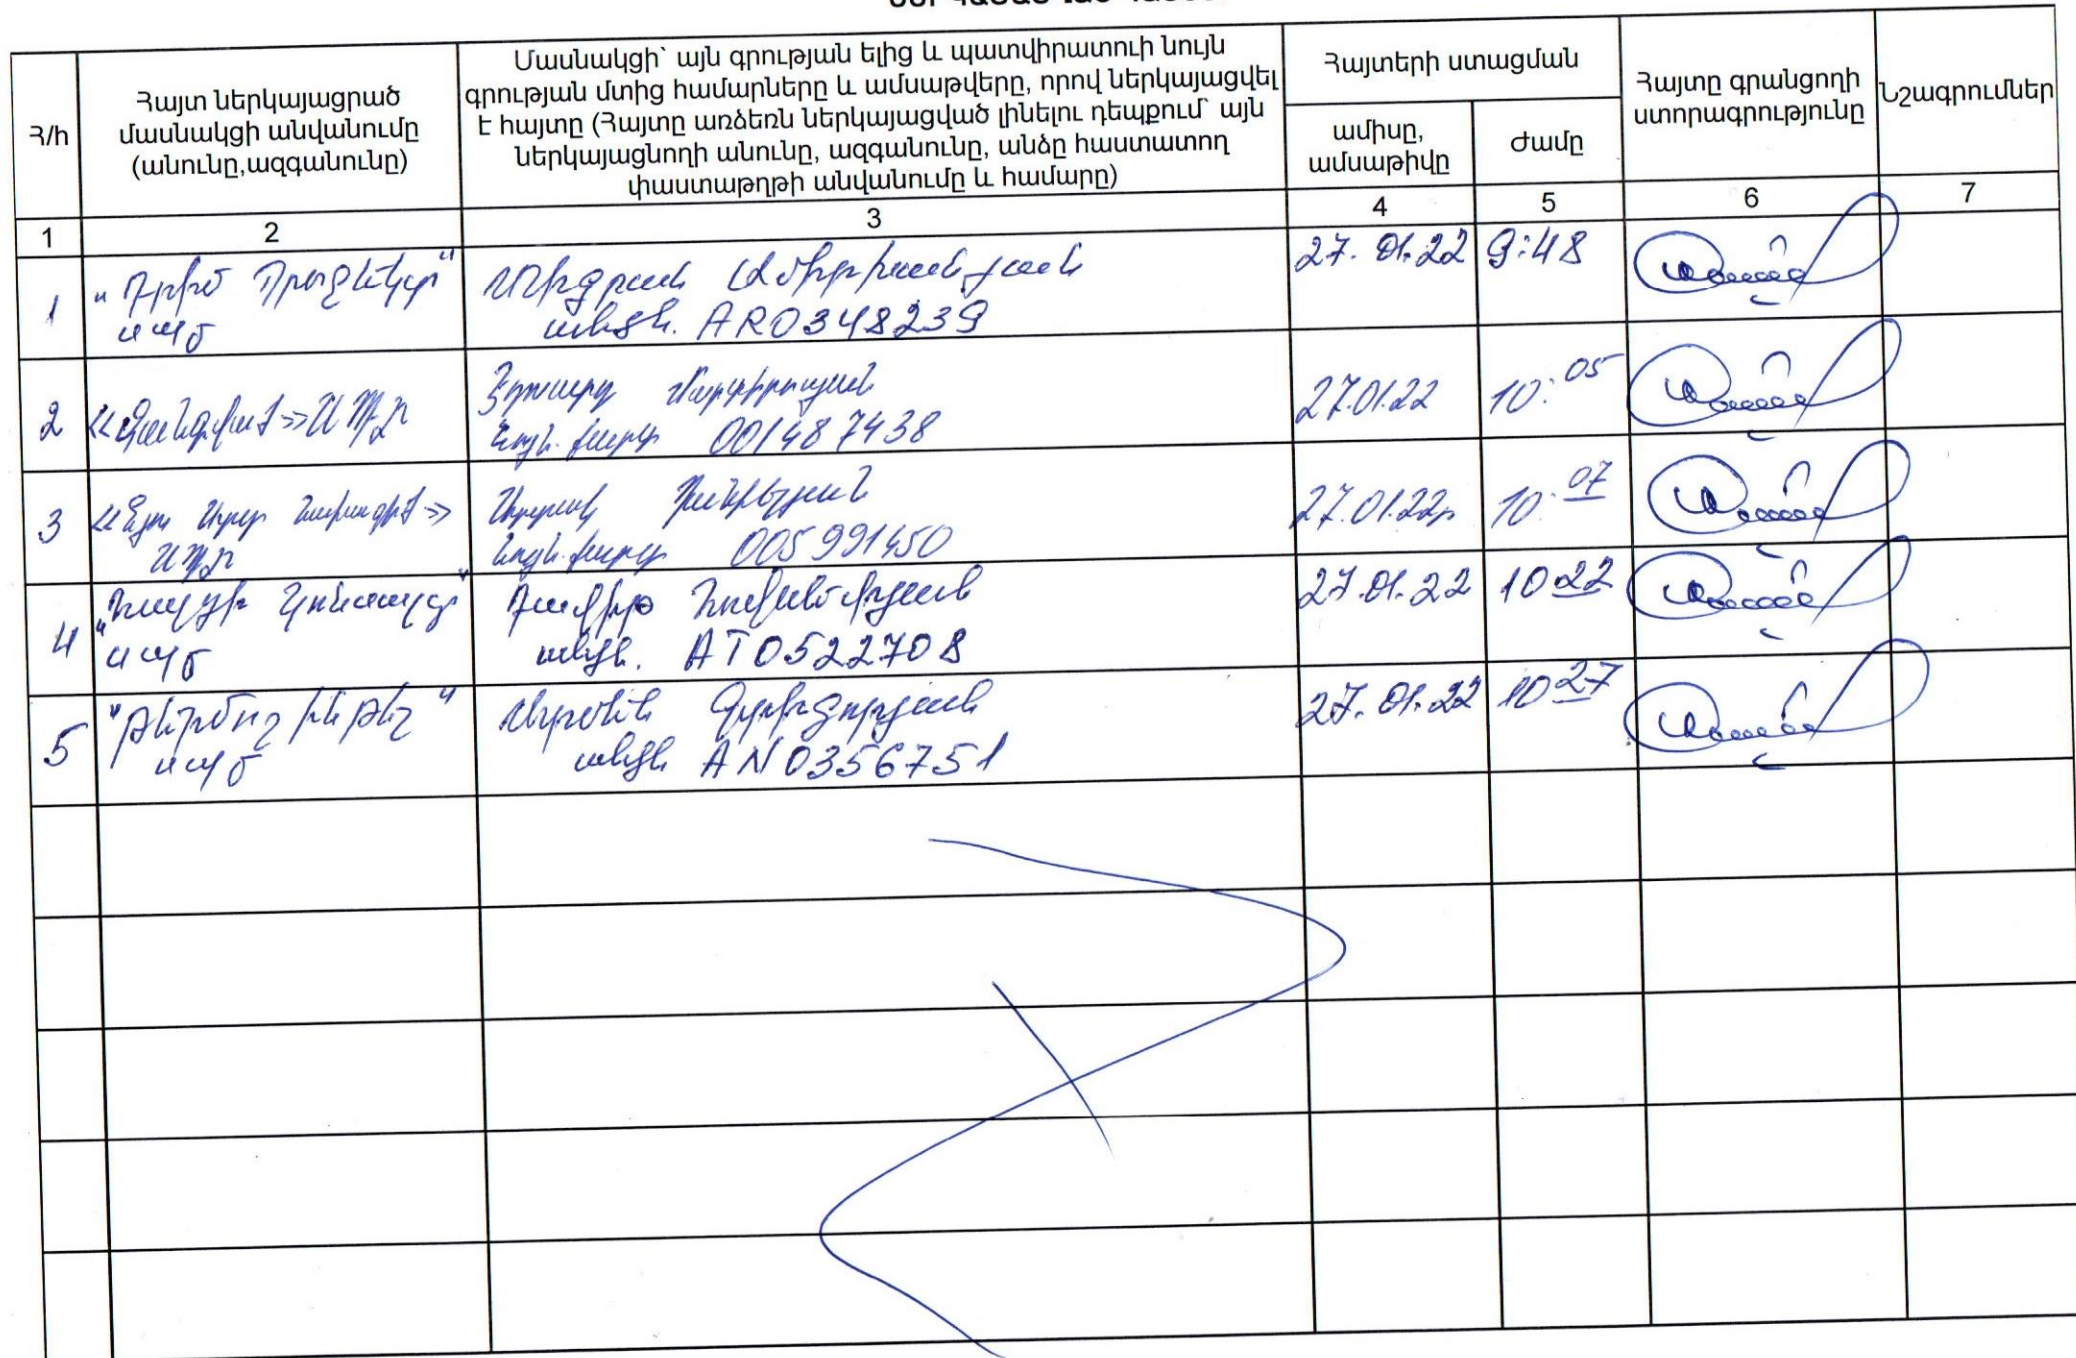 Հ/հ
Հայտ ներկայացրած
մասնակցի անվանումը
(անունը,ազգանունը)
Մասնակցի՝ այն գրության ելից և պատվիրատուի նույն
գրության մտից համարները և ամսաթվերը, որով ներկայացվել
է հայտը (Հայտը առձեռն ներկայացված լինելու դեպքում՝ այն
ներկայացնողի անունը, ազգանունը, անձը հաստատող
փաստաթղթի անվանումը և համարը)
Հայտերի ստացման
ամիսը,
ամսաթիվը
Ժամը
Հայտը գրանցողի
ստորագրությունը
Նշագրումներ
1 2 3 4 5 6 7
1
"Դրիմ Պրոջեկտ"
սպծ
Միհրան Ամիրխանյան
անձն. AR0348239
27.01.22 9:48
2
ՍՊԸ
Էդուարդ Մարտիրոսյան
նույն. քարտ 001487438
27.01.22 10:05
3
<<Նյու Արտ Նախագիծ>>
ՍՊԸ
Դանիելյան
նույն. քարտ 005991450
27.01.22 10:07
4
սպծ
Դավիթ Հովհաննիսյան
անձն. AT0522708
27.01.22 10 22
5
սպծ
Արսեն Գրիգորյան
անձն AN0356751
27.01.22 10 27